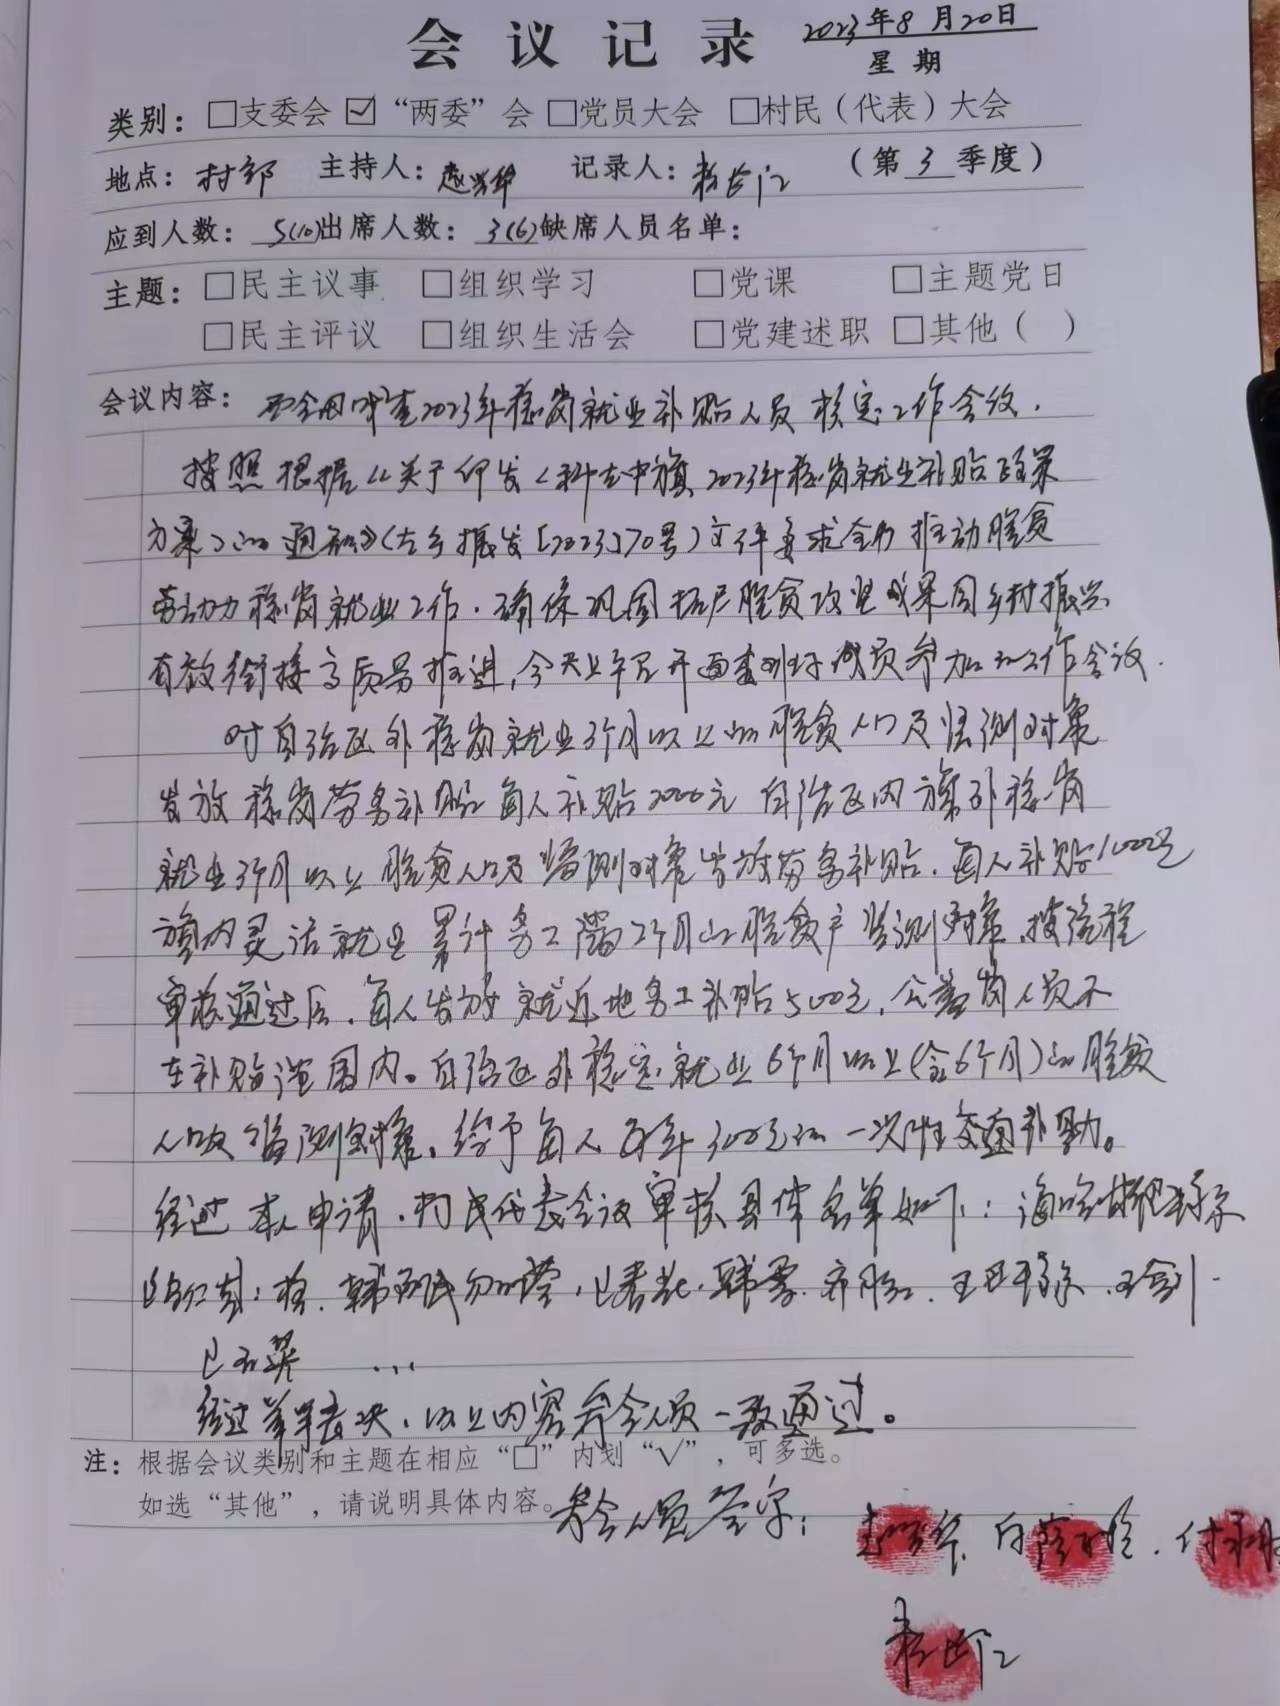 会议记录 2023年8月20日
星期
类别：□支委会 ☑“两委”会 □党员大会 □村民（代表）大会
地点：村部 主持人： 记录人： （第3季度）
应到人数：5(10)出席人数：3(6)缺席人员名单：
主题：□民主议事 □组织学习 □党课 □主题党日
□民主评议 □组织生活会 □党建述职 □其他（ ）
会议内容： 2023年稳岗就业补贴人员核定工作会议.
按照根据《关于印发<科左中旗2023年稳岗就业补贴政策
方案>的通知》(左乡振发[2023]70号)文件要求全力推动脱贫
劳动力稳岗就业工作.确保巩固拓展脱贫攻坚成果同乡村振兴
有效衔接高质量推进,今天上午召开两委班子成员参加的工作会议.
对自治区外稳岗就业3个月以上的脱贫人口及监测对象
发放稳岗劳务补贴每人补贴2000元 自治区内旗外稳岗
就业3个月以上脱贫人口及监测对象发放劳务补贴.每人补贴1000元
旗内灵活就业累计务工满2个月的脱贫户监测对象.按流程
审核通过后.每人发放就近地务工补贴500元,公益岗人员不
在补贴范围内。自治区外稳定就业6个月以上(含6个月)的脱贫
人口及监测对象,给予每人每年300元的一次性交通补助。
经过本人申请.村民代表会议审核具体名单如下:
韩雪.
...
经过举手表决,以上内容参会人员一致通过。
注：根据会议类别和主题在相应“□”内划“√”，可多选。
如选“其他”，请说明具体内容。参会人员签字: